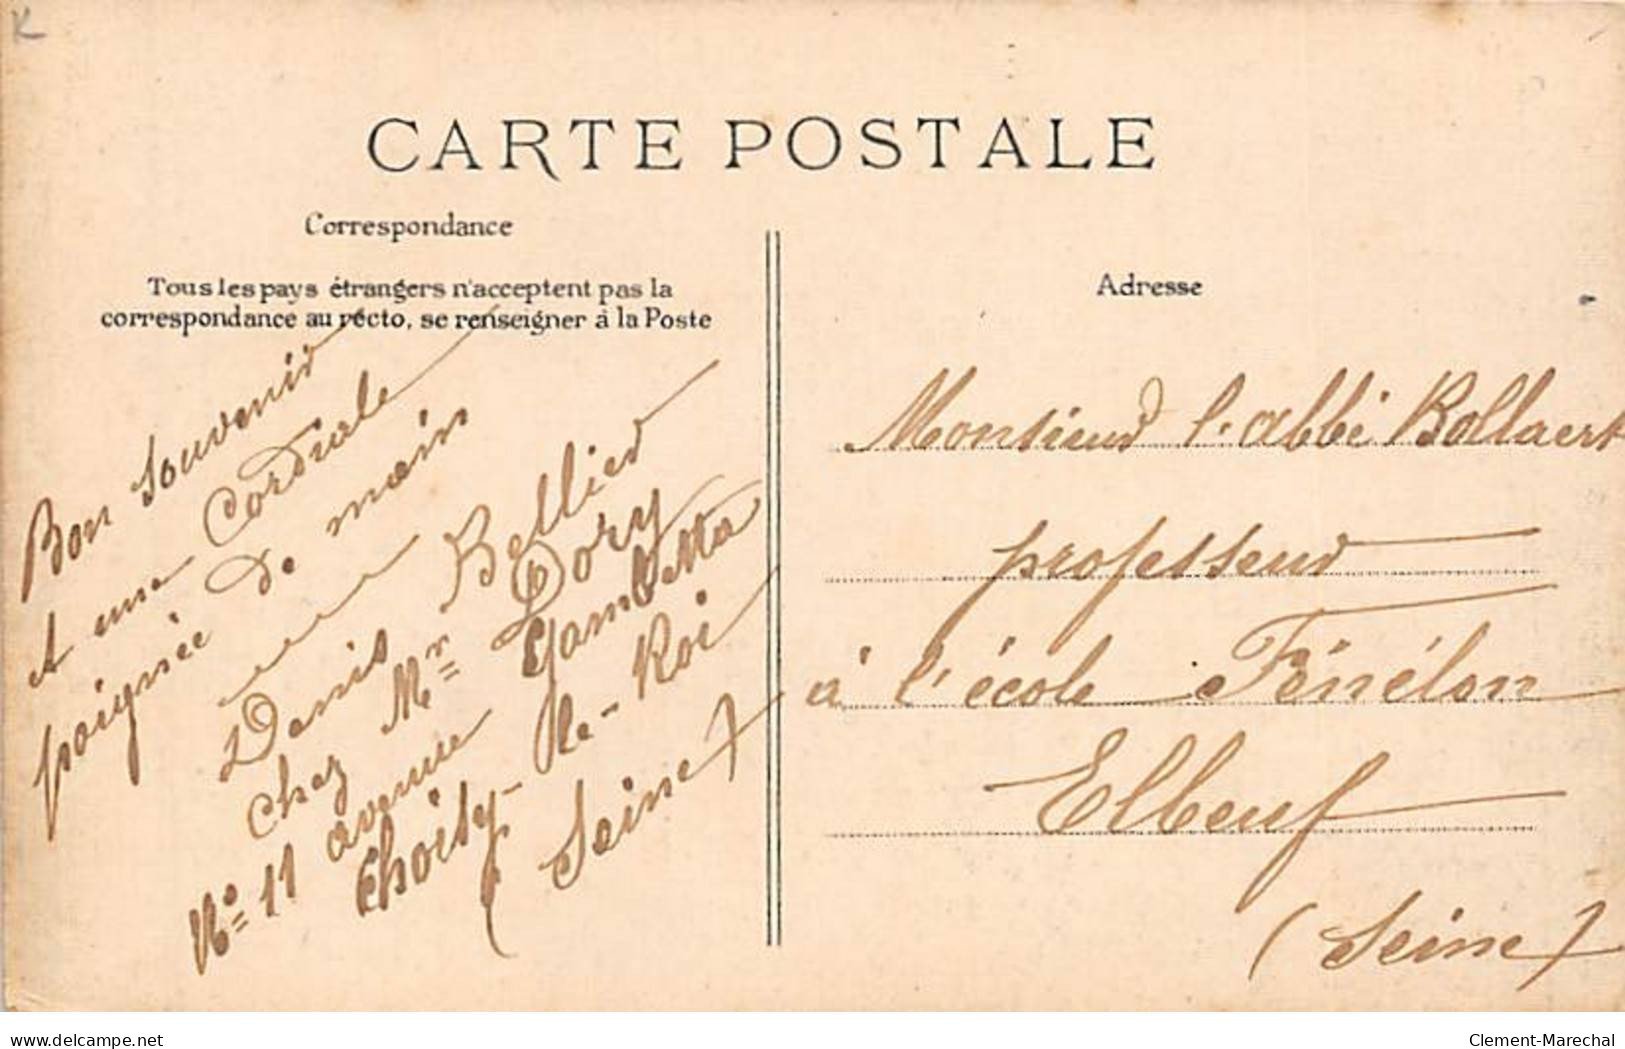 K
CARTE POSTALE
Correspondance
Tous les pays étrangers n'acceptent pas la
correspondance au recto, se renseigner à la Poste
Bon Souvenir
et une Cordiale
poignée de main
Denis Bellier
chez Mr Dory
No 11 avenue Gambetta
Choisy-le-Roi
(Seine)
Adresse
Monsieur l'abbé Bollaert
professeur
à l'école Fénélon
Elbeuf
(Seine)
delcampe.net
Clement-Marechal